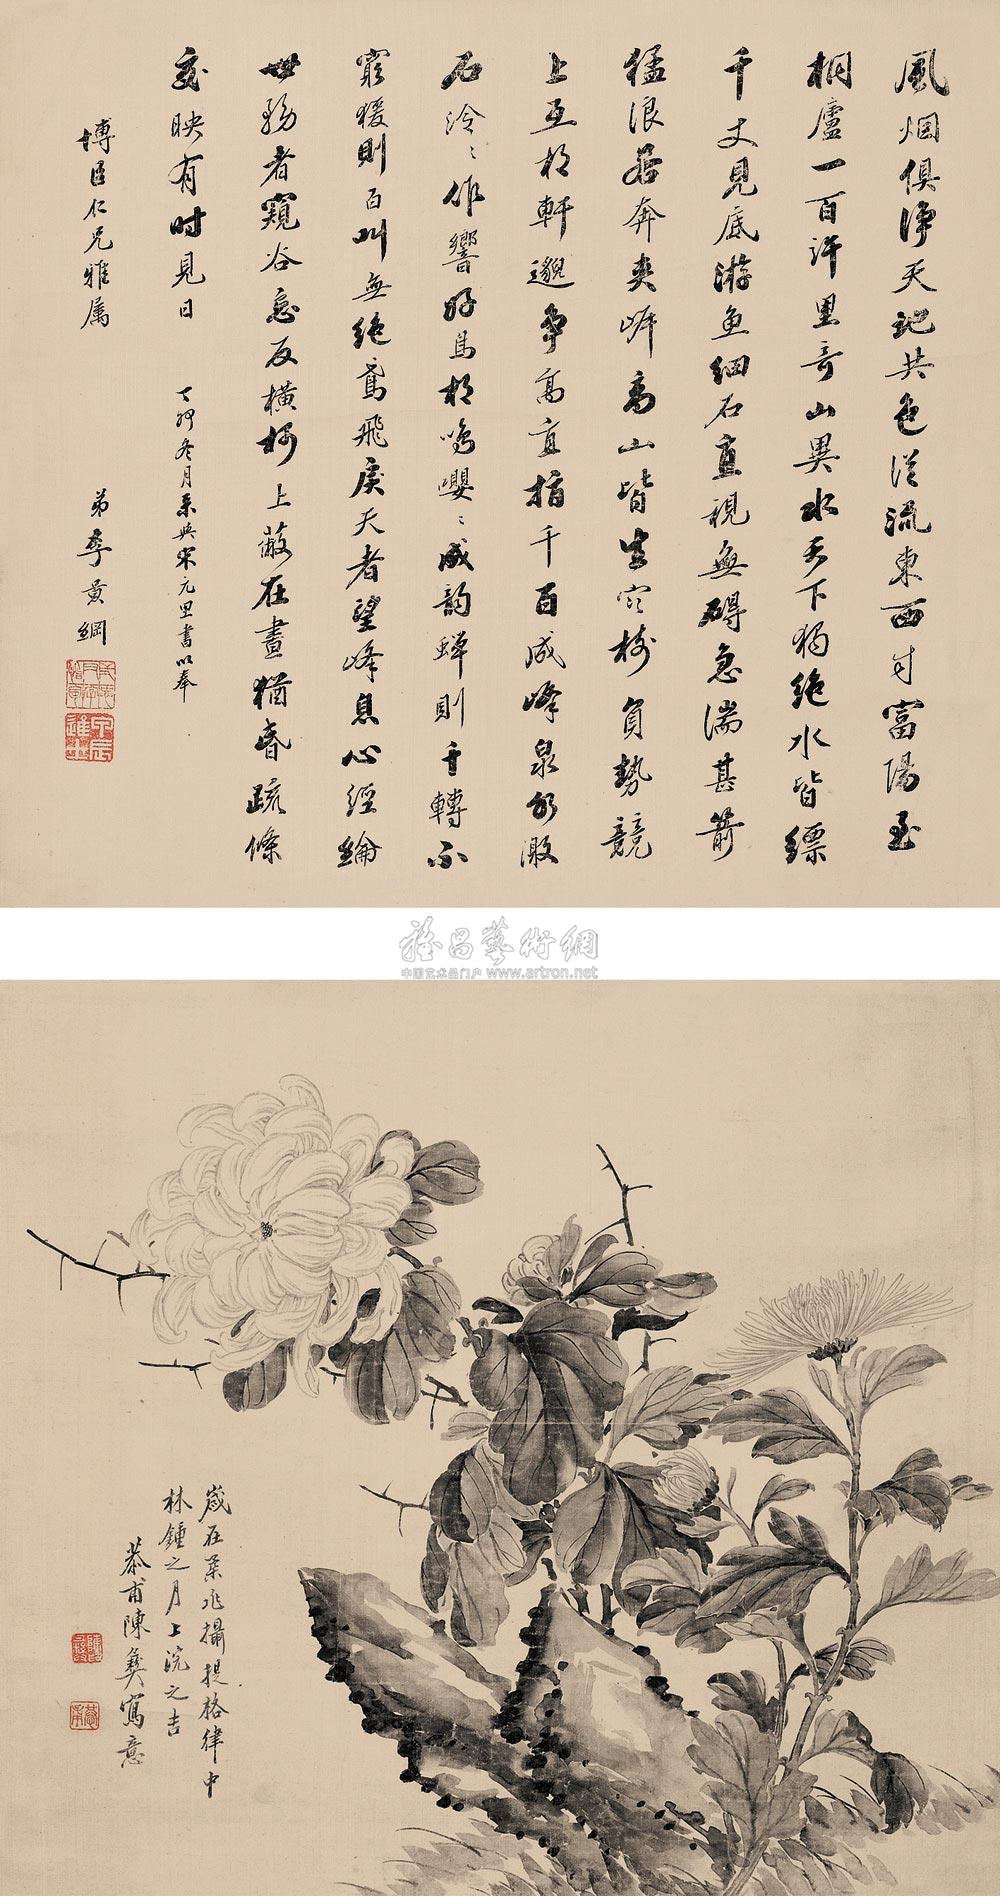 風烟俱淨天地共色從流東西自富陽至
桐廬一百許里奇山異水天下獨絕水皆縹
千丈見底游魚細石直視無礙急湍甚箭
猛浪若奔夾岸高山皆生寒樹負勢競
上互相軒邈爭高直指千百成峰泉水激
石泠〻作響好鳥相鳴嚶〻成韵蟬則千轉不
窮猨則百叫無絕鳶飛戾天者望峰息心經綸
世務者窺谷忘反橫柯上蔽在晝猶昏疏條
交映有時見日
丁卯冬月與宋元里書以奉
博臣仁兄雅属
弟黃綱
雅昌藝術網
中国艺术品门户 www.artron.net
歲在柔兆攝提格律中
林鍾之月上浣之吉
恭甫陳彝寫意